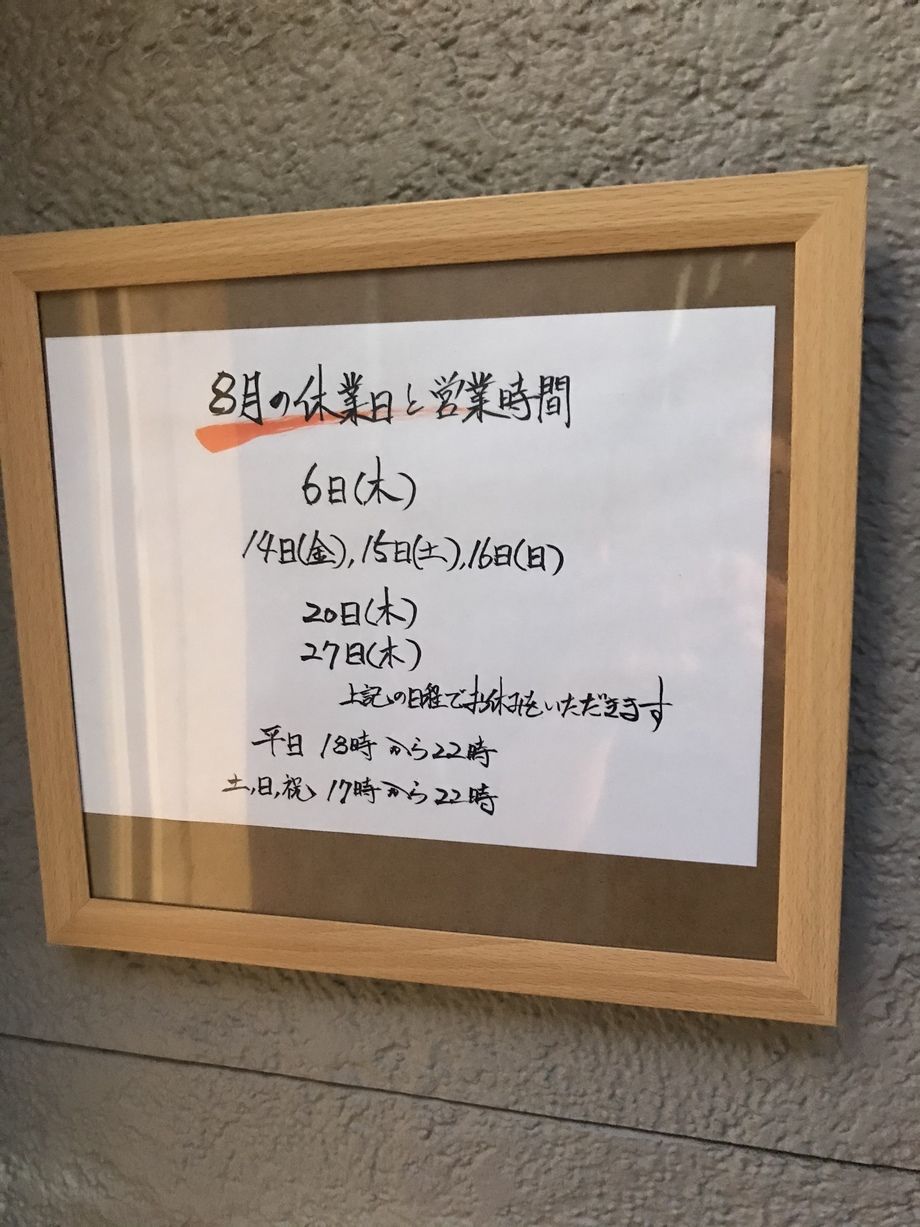 8月の休業日と営業時間
6日(木)
14日(金),15日(土),16日(日)
20日(木)
27日(木)
上記の日程でお休みをいただきます
平日 18時から22時
土,日,祝 17時から22時